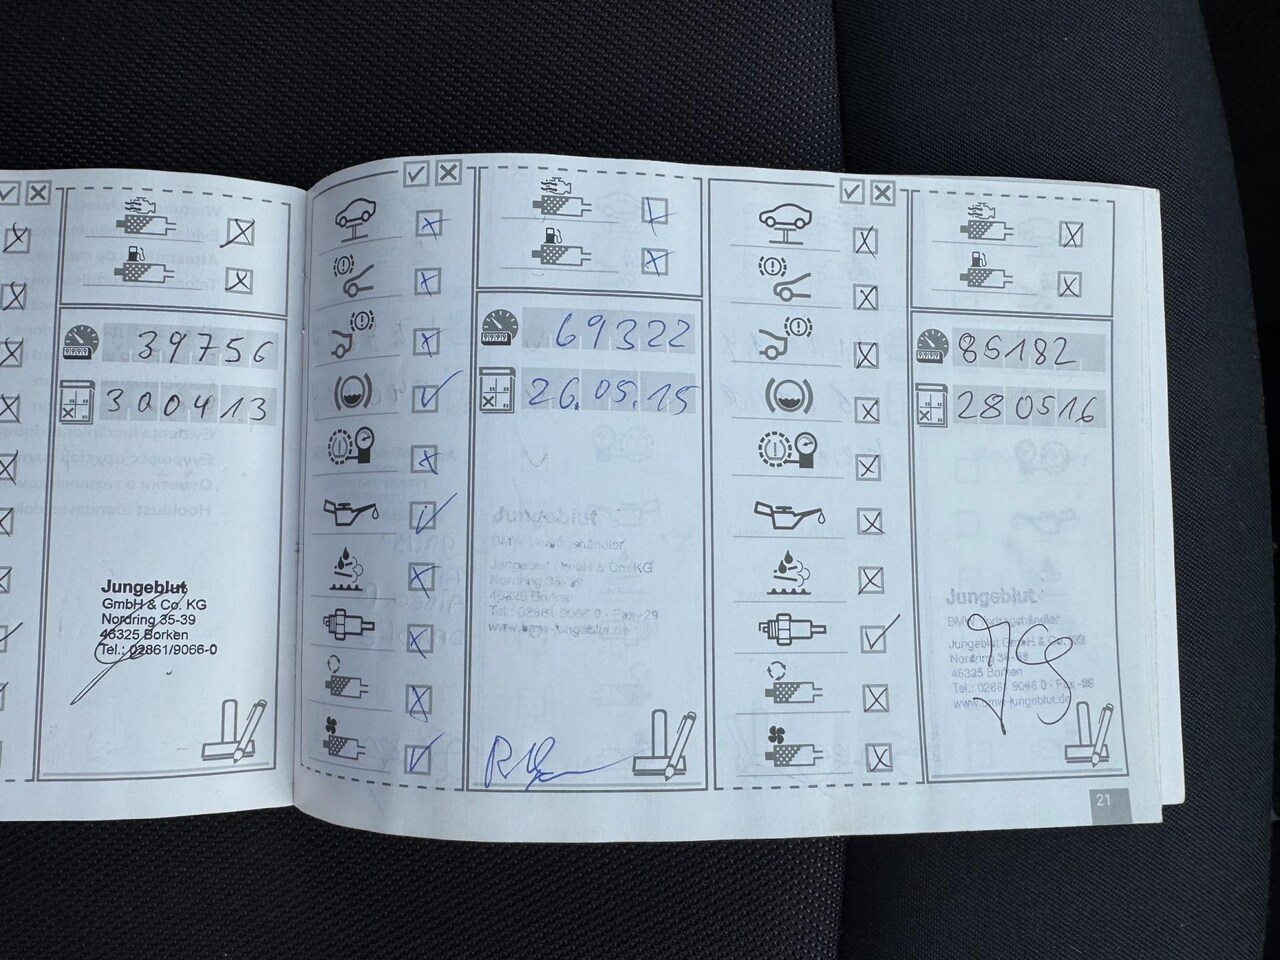 39756
300413
Jungeblut
GmbH & Co. KG
Nordring 35-39
46325 Borken
Tel.: 02861/9066-0
69322
26.05.15
Jungeblut
Jungeblut GmbH & Co. KG
46325 Borken
Tel.: 02861 9066 0 · Fax -29
www.bmw-jungeblut.de
85182
280516
Jungeblut
BMW Vertragshändler
Jungeblut GmbH & Co. KG
Nordring 35-39
46325 Borken
Tel.: 02861 9066 0 · Fax -29
www.bmw-jungeblut.de
21